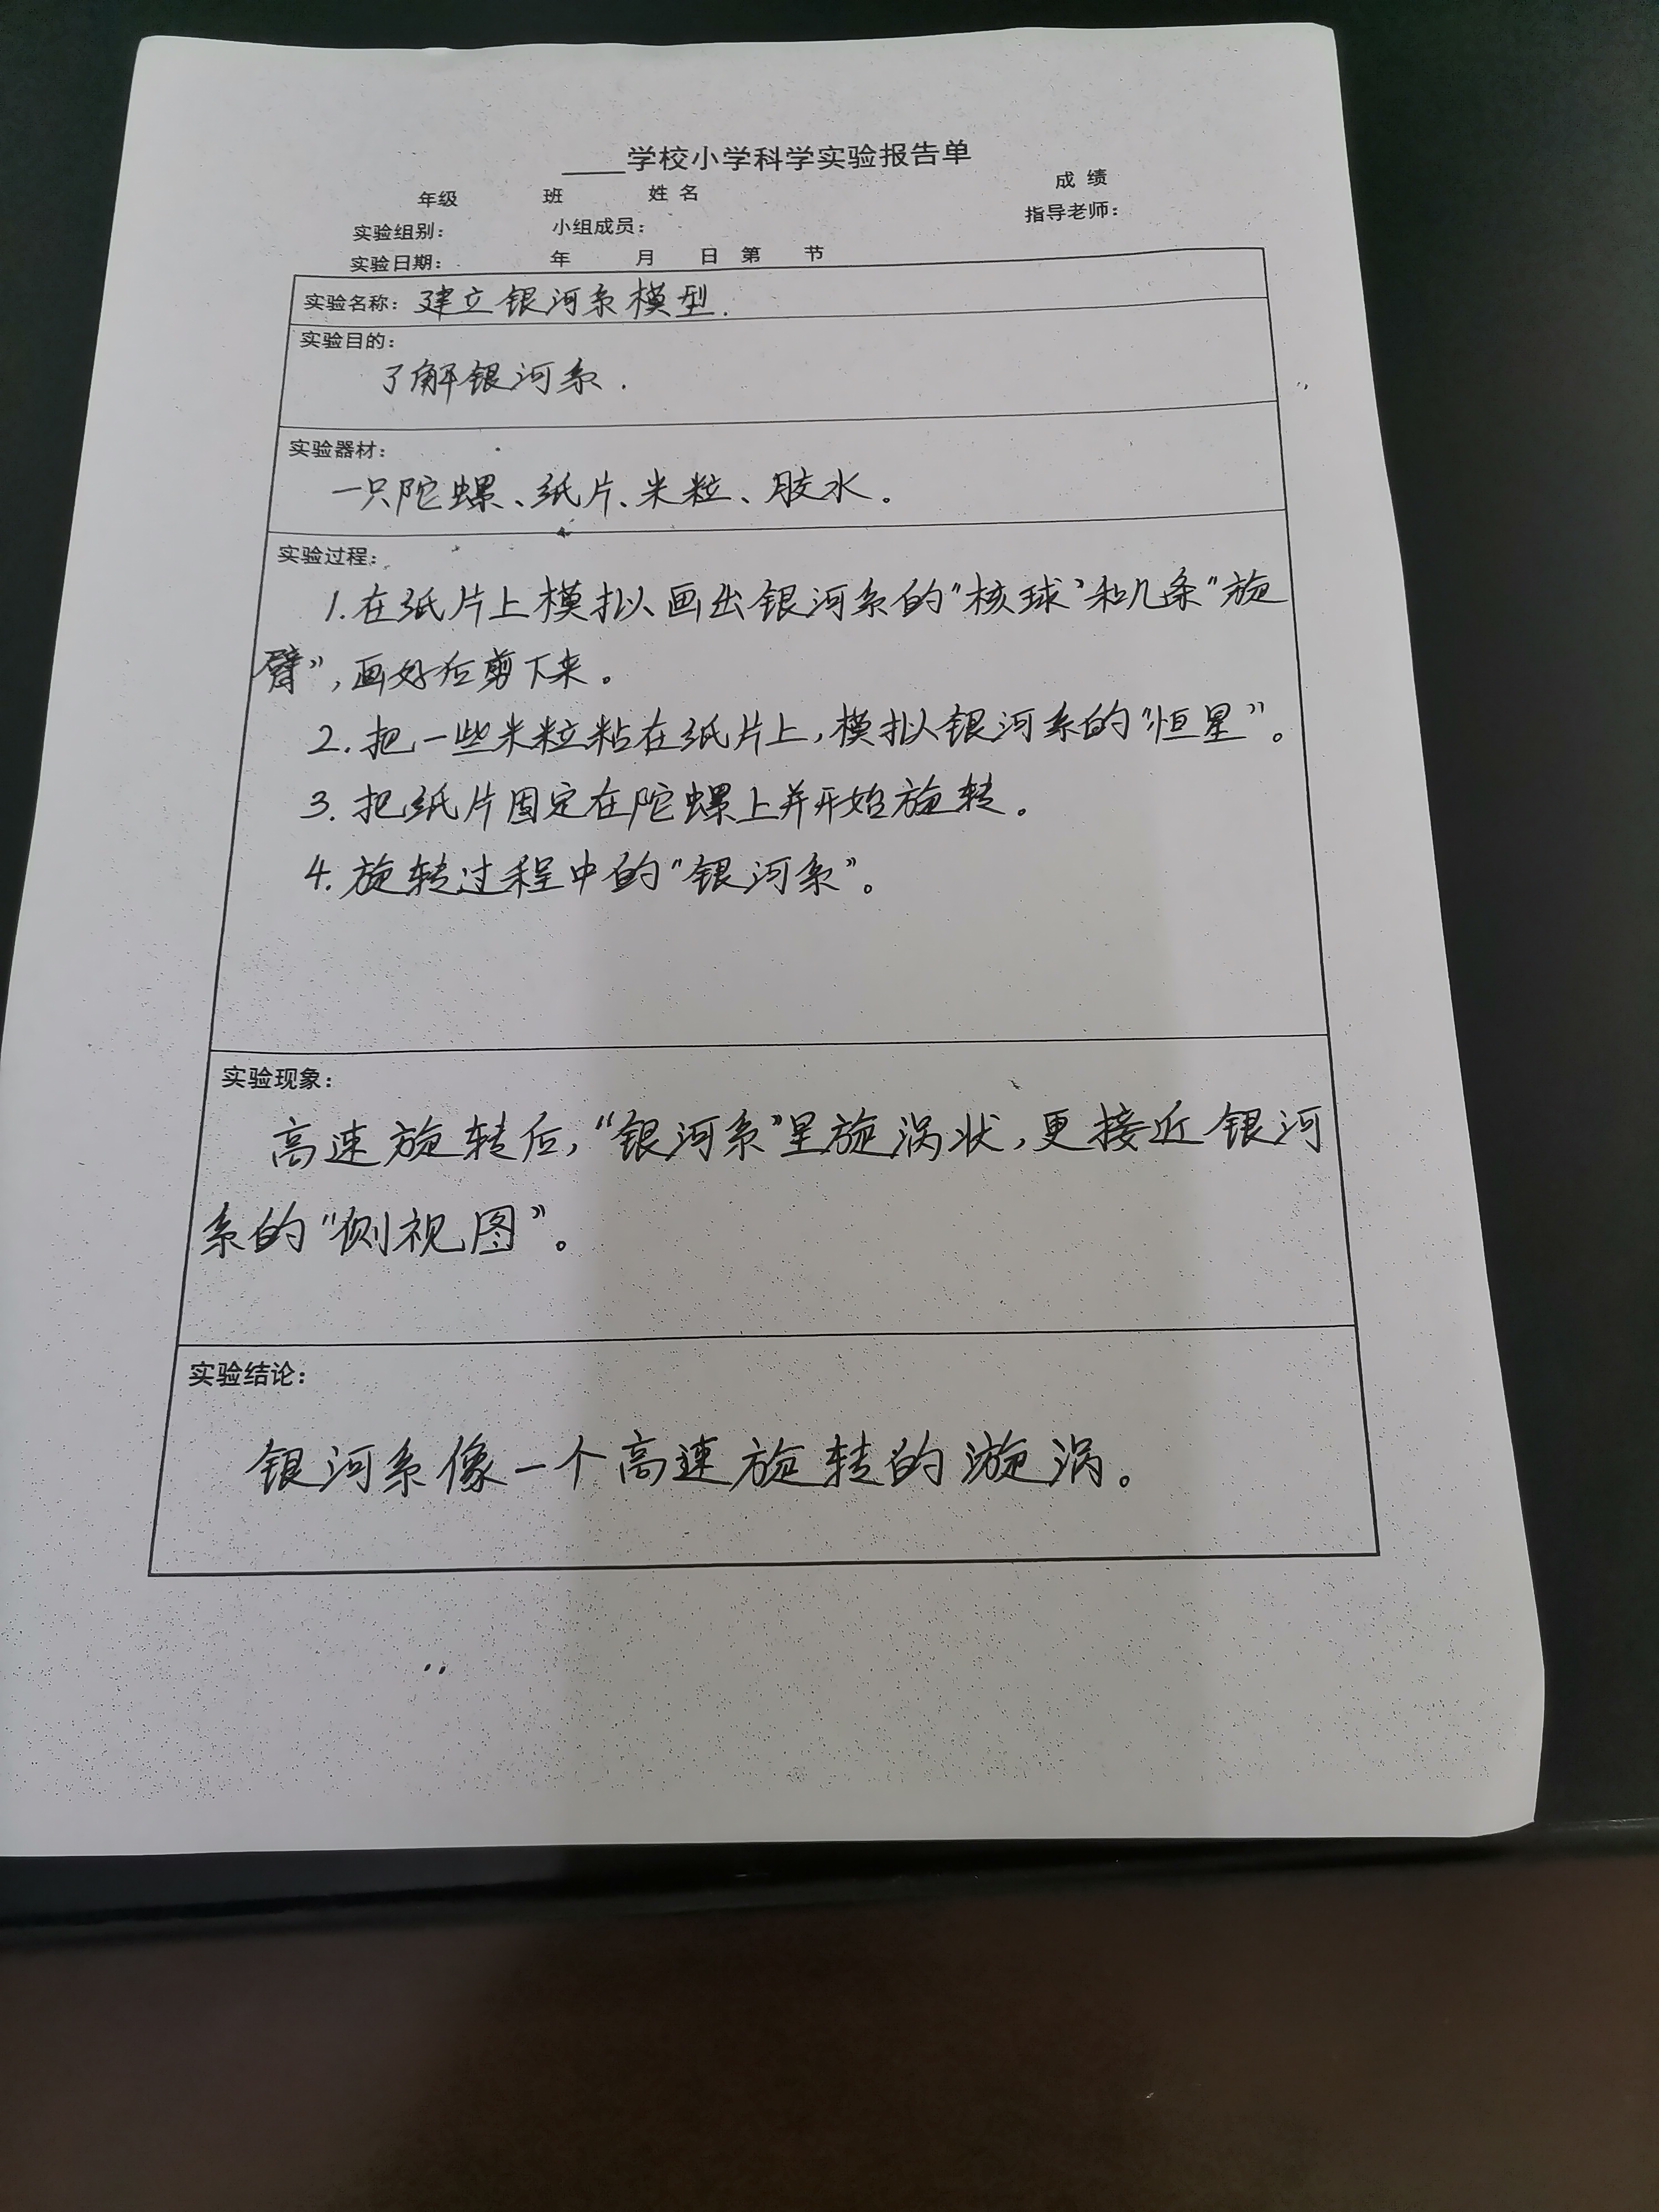 ____学校小学科学实验报告单
年级 班 姓名 成绩
实验组别： 小组成员： 指导老师：
实验日期： 年 月 日 第 节
实验名称：建立银河系模型.
实验目的：
了解银河系.
实验器材：
一只陀螺、纸片、米粒、胶水.
实验过程：
1.在纸片上模拟画出银河系的“核球”和几条“旋
臂”，画好后剪下来。
2.把一些米粒粘在纸片上，模拟银河系的“恒星”。
3.把纸片固定在陀螺上并开始旋转。
4.旋转过程中的“银河系”。
实验现象：
高速旋转后，“银河系”呈旋涡状，更接近银河
系的“侧视图”。
实验结论：
银河系像一个高速旋转的漩涡。